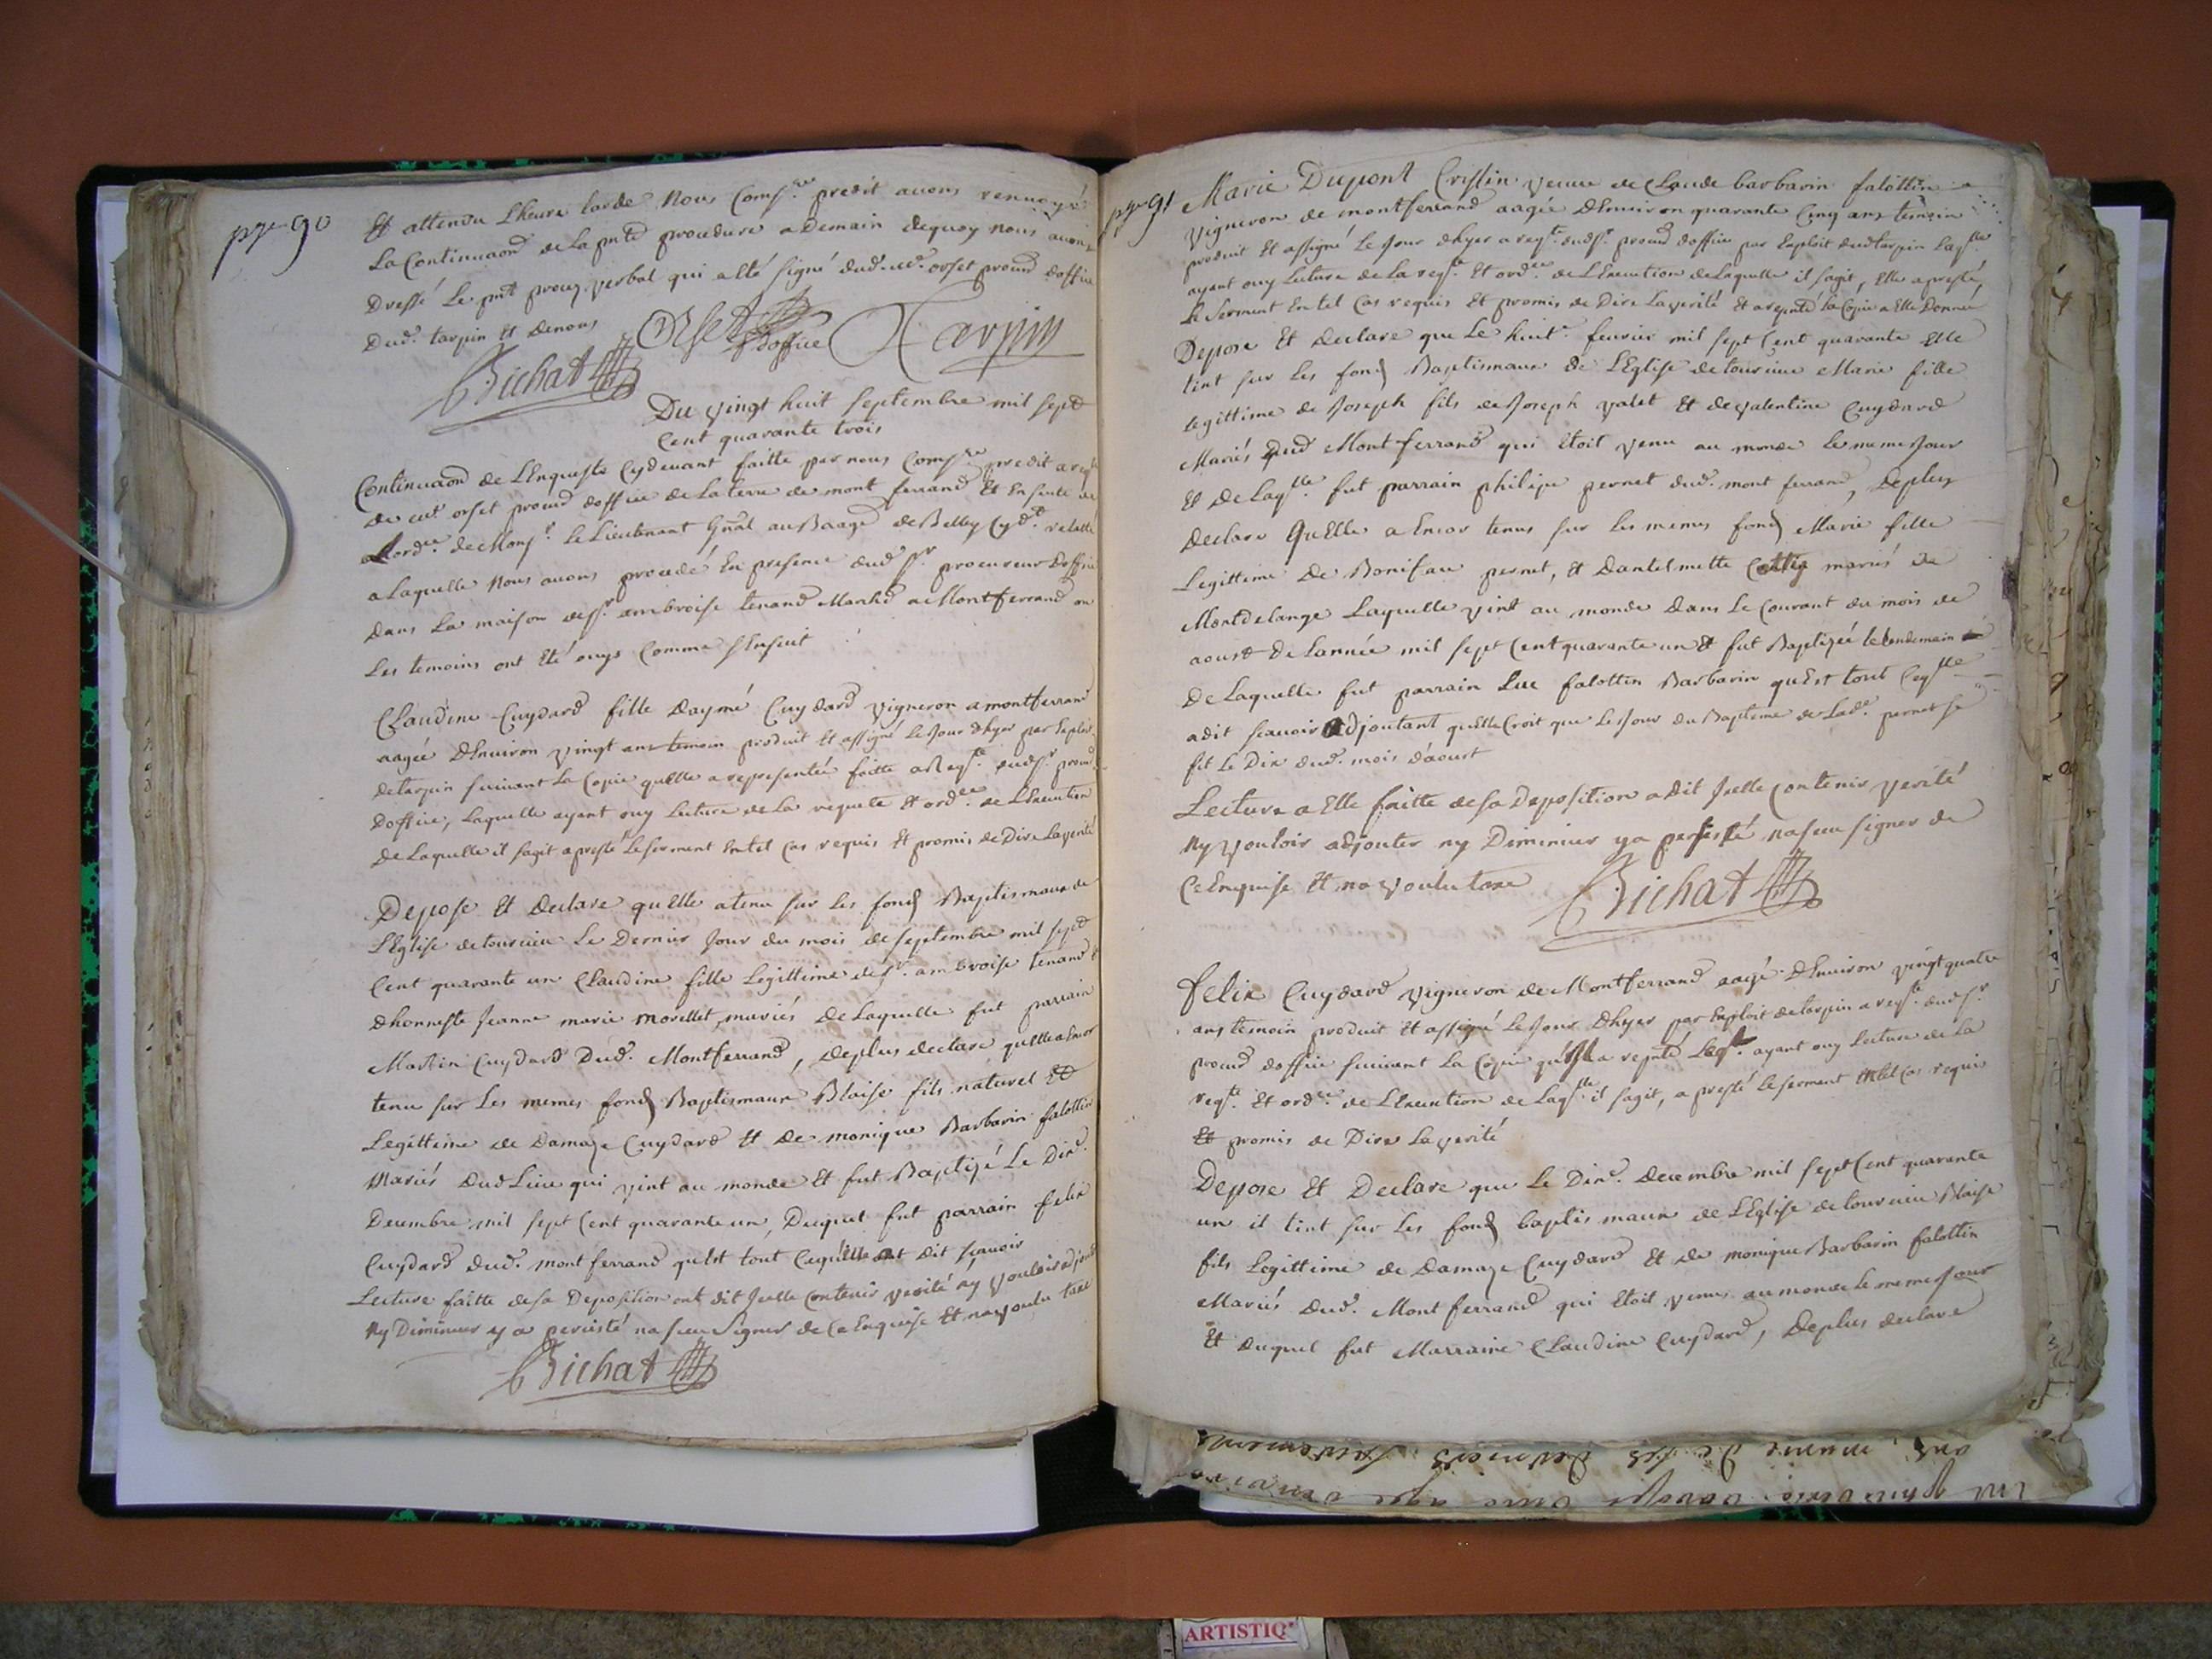 pge 90
Et attendu Lheure tarde Nous Comsre predit avons renvoyé
La Continuaon de La pnte procedure a Demain dequoy nous avons
Dressé Le pnt procez verbal qui a Eté signé dud. me. orset procur doffice
Dud. tarpin Et denous
Orset pr doffice Tarpin
Bichat
Du vingt huit septembre mil sept
Cent quarante trois
Continuaon de LEnqueste Cydevant faitte par nous Comsre predit a reqte
De me. orset procur doffice de La terre de mont ferrand Et Ensuite de
Lordce. de Monsr. le Lieutenant Gnāl au Baage de Belley Cydt. relatté
a Laquelle Nous avons procedé En presence dud sr. procureur doffice
Dans La maison de sr. ambroise tenand Marchd a Montferrand ou
Les temoins ont Eté ouys Comme sEnsuit
Claudine Cuydard fille daymé Cuydard vigneron a montferrand
aagée dEnviron vingt ans temoin produit Et assigné le jour dhyer par Exploit
de tarpin suivant La Copie quElle a representée faitte a Reqte. dudsr. procur
Doffice, Laquelle ayant ouy Lecture de la requete Et ordce. de LExecution
De Laquelle il sagit a presté Le serment En tel Cas requis Et promis de Dire La verité
Depose Et Declare quElle a tenu sur Les fonds Baptismaux de
LEglise de tourcieu Le Dernier jour du mois de septembre mil sept
Cent quarante un Claudine fille Legittime de sr. ambroise tenand Et
dhonneste Jeanne marie morellet, mariés de Laquelle fut parrain
Martin Cuydard Dud. Montferrand, deplus declare quElle a Encor
tenu sur Les memes fonds Baptismaux Blaise fils naturel Et
Legittime de Damaze Cuydard Et de monique Barbarin falottin
Mariés Dud Lieu qui vint au monde Et fut Baptizé Le Dixe.
Decembre mil sept Cent quarante un, Duquel fut parrain felix
Cuydard dud. mont ferrand quEst tout Cequ'elle at Dit sçavoir
Lecture faitte de sa Deposition ont dit Jcelle Contenir verité ny vouloir adjouter
Ny Diminuer y a percisté na sceu signer de Ce Enquise Et na voulu taxe
Bichat
pge 91
Marie Dupont Cristin veuve de Claude barbarin falottin
vigneron de montferrand aagée dEnviron quarante Cinq ans temoin
produit Et assigné Le Jour dhyer a reqte. dudsr. procur doffice par Exploit dud tarpin Laqlle
ayant ouy Lecture de La reqte. Et ordce. de LExecution de Laquelle il sagit, Elle a presté,
Le Serment En tel Cas requis Et promis de Dire La verité Et a repnté la Copie a Elle Donnée
Depose Et Declare que Le huite. fevrier mil sept Cent quarante Elle
tint sur Les fonds Baptismaux de LEglise de tourcieu Marie fille
legittime de Joseph fils de Joseph valet Et de valentine Cuydard
Mariés dud Mont ferrand qui étoit venu au monde le meme Jour
Et de Laqlle. fut parrain philipe pernet dud. mont ferrand, Deplus
Declare QuElle a Encor tenus sur Les memes fonds Marie fille
Legittime De Boniface pernet, Et Dantelmette Cottig mariés de
Montdelange Laquelle vint au monde Dans Le Courant du mois de
aoust de Lannée mil sept Cent quarante un Et fut Baptizée le lendemain
De Laquelle fut parrain Luc falottin Barbarin quEst tout Ceqlle
a dit scavoir Adjoutant quElle Croit que Le Jour du Bapteme de Lade. pernet se
fit Le Dix dud. mois d'aoust
Lecture a Elle faitte de sa Deposition a dit Jcelle Contenir verité
Ny vouloir adjouter ny Diminuer y a persisté na sceu signer de
Ce Enquise Et na voulu taxe
Bichat
felix Cuydard vigneron de Montferrand aagé dEnviron vingt quatre
ans temoin produit Et assigné Le Jour Dhyer par Exploit de tarpin a reqte. dudsr.
procur doffice suivant La Copie qu'il a repnté Leqt. ayant ouy Lecture de La
reqte. Et ordce. de LExecution de Laqlle. il sagit, a presté le serment En tel Cas requis
Et promis de Dire La verité
Depose Et Declare que Le Dixe. decembre mil sept Cent quarante
un il tint sur Les fonds baptismaux de LEglise de tourcieu Blaise
fils Legittime de Damaze Cuydard Et de monique Barbarin falottin
Mariés Dud. Mont ferrand qui Etoit venu au monde le meme Jour
Et duquel fut Marraine Claudine Cuydard, Deplus declare
ARTISTIQ'